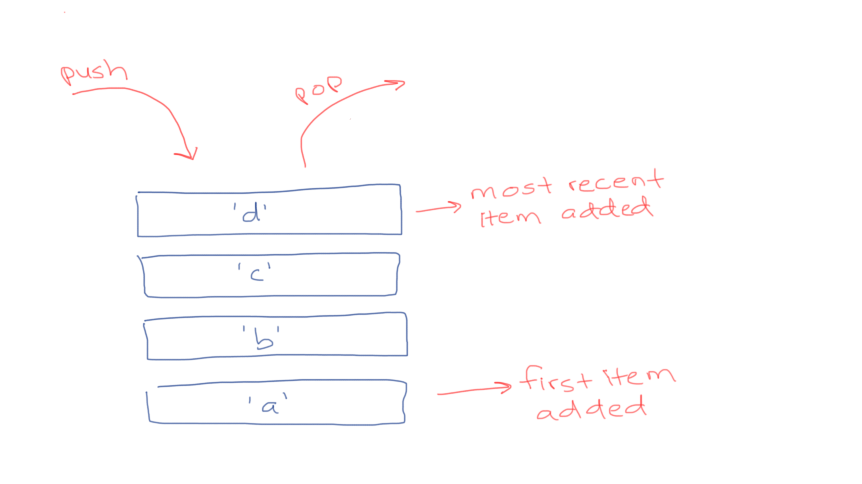 push
pop
'd'
most recent
item added
'c'
'b'
'a'
first item
added